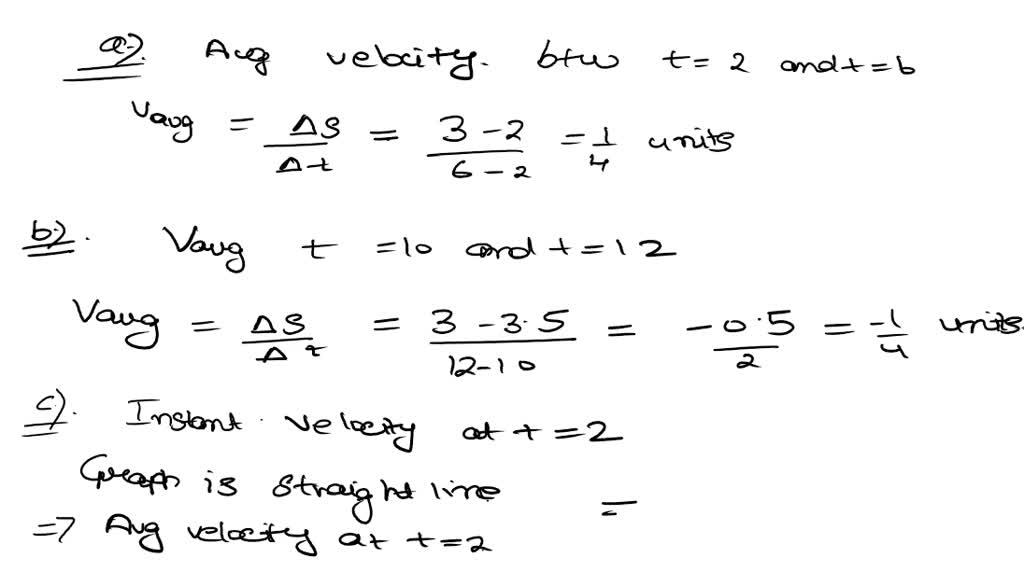 a). Avg velocity. btw t = 2 and t = 6
Vavg = ΔS/Δt = 3 - 2/6 - 2 = 1/4 units
b). Vavg t = 10 and t = 12
Vavg = ΔS/Δt = 3 - 3.5/12 - 10 = -0.5/2 = -1/4 units.
c). Instant velocity at t = 2
Graph is straight line =
=> Avg velocity at t = 2